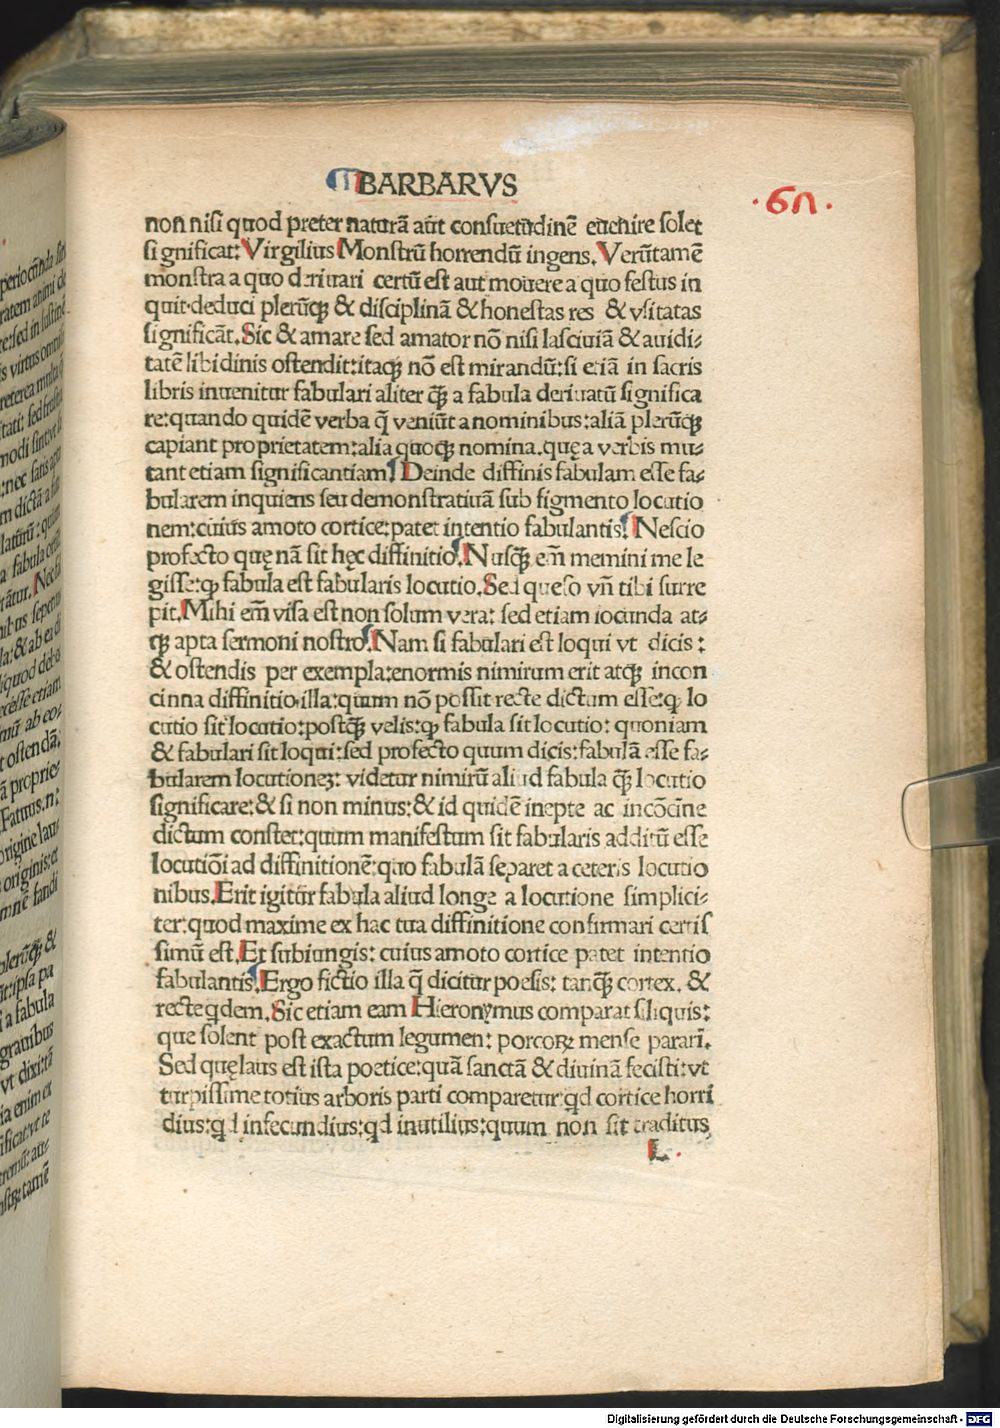 BARBARVS
·6n·
non nisi quod preter naturã aūt consuetudinẽ euenire solet
significat: Virgilius Monstrū horrendū ingens. Verūtamẽ
monstra a quo deriuari certū est aut mouere a quo festus in
quit·deduci plerūq̃ & disciplinã & honestas res & vsitatas
significãt. Sic & amare sed amator nõ nisi lasciuiã & auidi⸗
tatẽ libidinis ostendit: itaq̃ nõ est mirandū: si etiã in sacris
libris inuenitur fabulari aliter q̃ a fabula deriuatū significa
re: quando quidẽ verba q̃ veniūt a nominibus: aliã plerūq̃
capiant proprietatem: alia quoq̃ nomina. quę a verbis mu⸗
tant etiam significantiam. Deinde diffinis fabulam esse fa⸗
bularem inquiens seu demonstratiuã sub figmento locutio
nem: cuius amoto cortice: patet intentio fabulantis. Nescio
profecto quę nã sit hęc diffinitio. Nusq̃ em̃ memini me le
gisse: ꝙ fabula est fabularis locutio. Sed queso vñ tibi surre
pit. Mihi em̃ visa est non solum vera: sed etiam iocunda at⸗
q̃ apta sermoni nostro. Nam si fabulari est loqui vt dicis:
& ostendis per exempla: enormis nimirum erit atq̃ incon
cinna diffinitio illa: quum nõ possit recte dictum esse: ꝙ lo
cutio sit locutio: postq̃ velis: ꝙ fabula sit locutio: quoniam
& fabulari sit loqui: sed profecto quum dicis: fabulã esse fa⸗
bularem locutionez: videtur nimirū aliud fabula q̃ locutio
significare: & si non minus: & id quidẽ inepte ac incõcine
dictum constet: quum manifestum sit fabularis additū esse
locutiõi ad diffinitionẽ: quo fabulã separet a ceteris locutio
nibus. Erit igitur fabula aliud longe a locutione simplici⸗
ter: quod maxime ex hac tua diffinitione confirmari certis
simū est. Et subiungis: cuius amoto cortice patet intentio
fabulantis. Ergo fictio illa q̃ dicitur poesis: tanq̃ cortex. &
recte qdem. Sic etiam eam Hieronymus comparat siliquis:
que solent post exactum legumen: porcoꝝ mense parari.
Sed quę laus est ista poetice: quã sanctã & diuinã fecisti: vt
turpissime totius arboris parti comparetur: qd cortice horri
dius: qd infecundius: qd inutilius: quum non sit traditus
L.
Digitalisierung gefördert durch die Deutsche Forschungsgemeinschaft - DFG